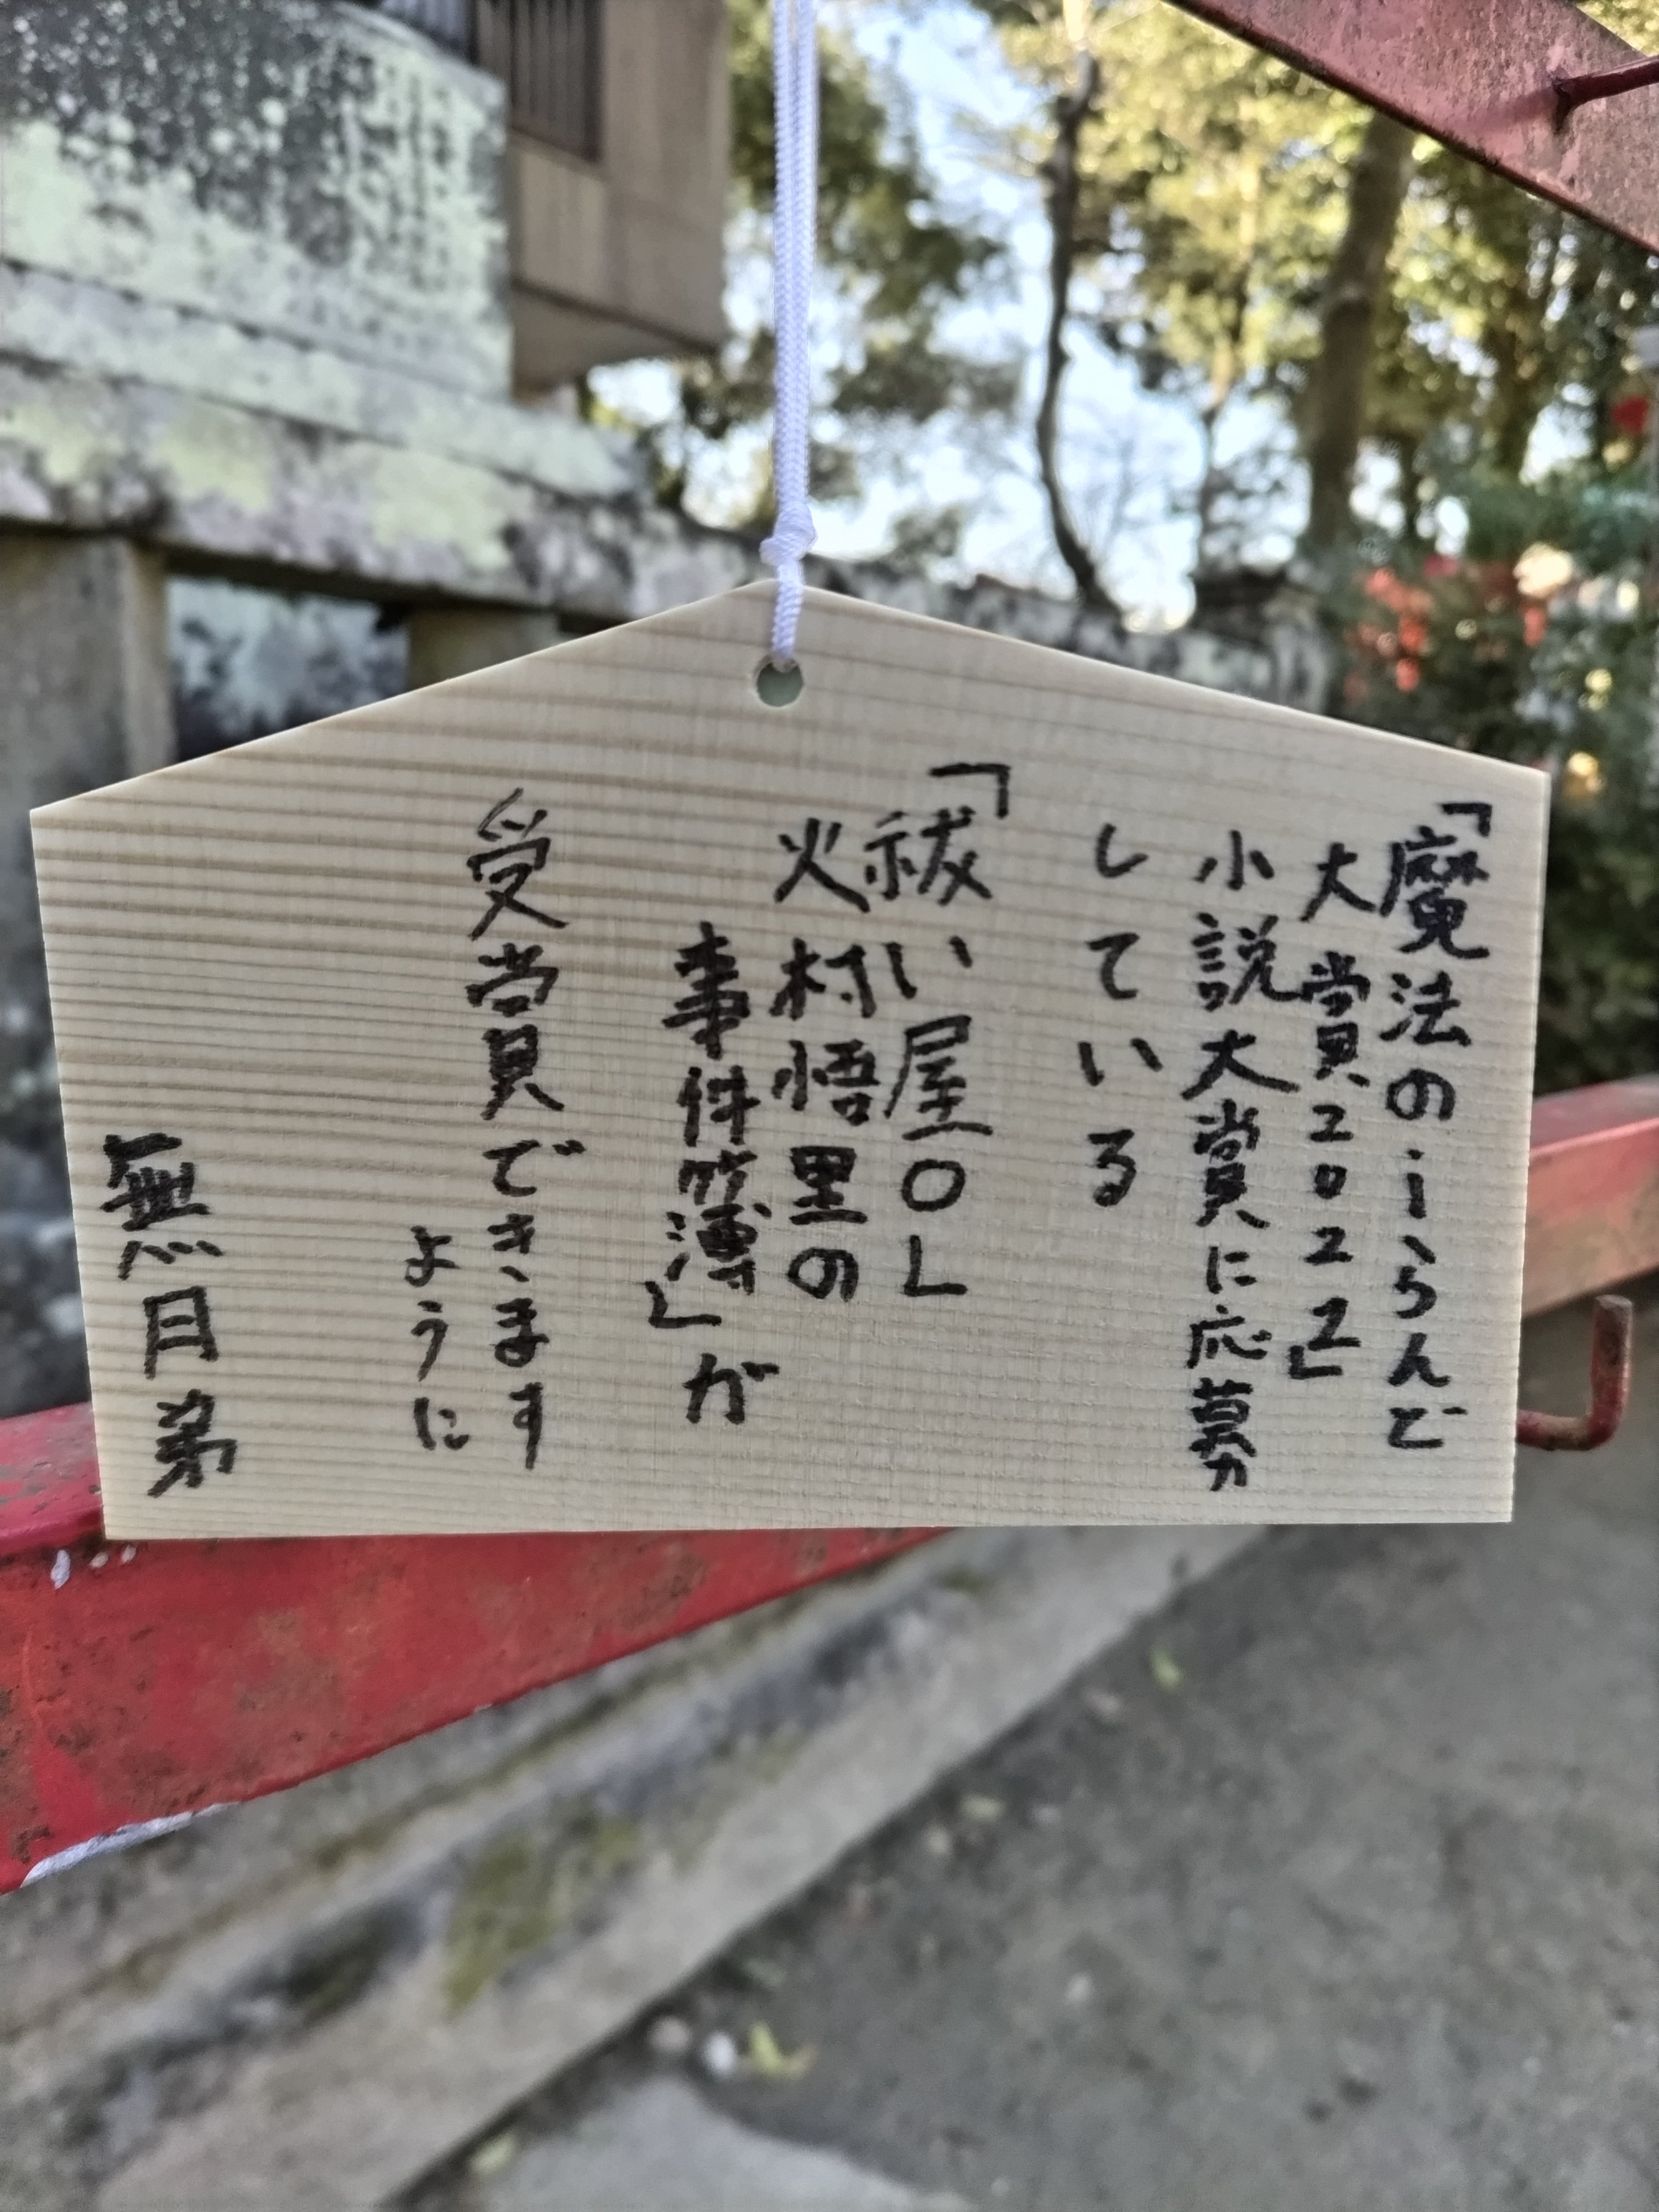 「魔法のiらんど
大賞2022」
小説大賞に応募
している
「祓い屋OL
火村悟里の
事件簿」が
受賞できます
ように
無月弟